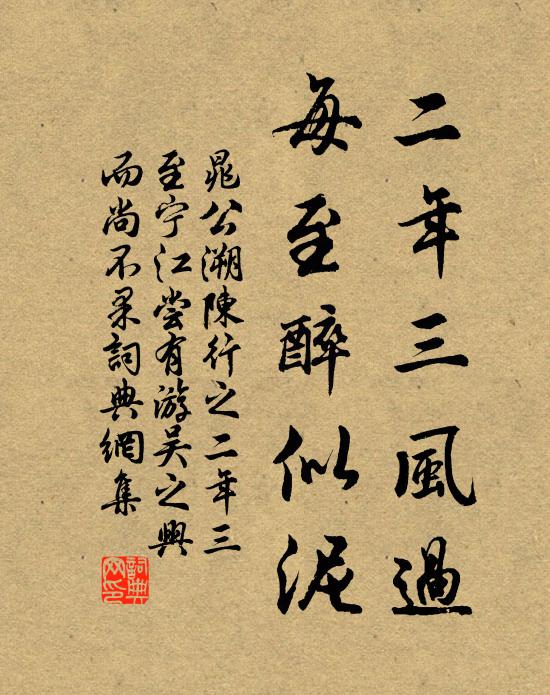 二年三風過
每至醉似泥
晁公溯陳行之二年三
至宁江嘗有游吴之興
而尚不果詞典網集
詞典
网印